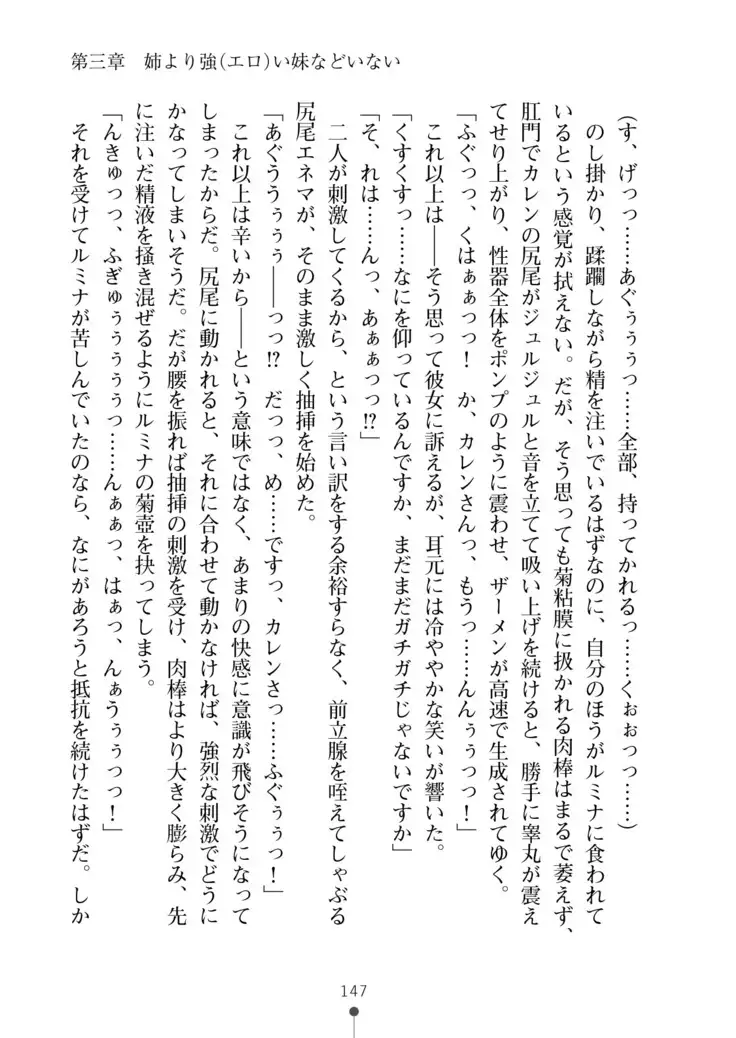 第三章　姉より強（エロ）い妹などいない
（す、げっっ……あぐぅぅぅっ……全部、持ってかれるっ……くぉぉっっ……）
　のし掛かり、蹂躙しながら精を注いでいるはずなのに、自分のほうがルミナに食われて
いるという感覚が拭えない。だが、そう思っても菊粘膜に扱かれる肉棒はまるで萎えず、
肛門でカレンの尻尾がジュルジュルと音を立てて吸い上げを続けると、勝手に睾丸が震え
てせり上がり、性器全体をポンプのように震わせ、ザーメンが高速で生成されてゆく。
「ふぐっっ、くはぁぁっっ！　か、カレンさんっ、もうっ……んんぅぅっっ！」
　これ以上は――そう思って彼女に訴えるが、耳元には冷ややかな笑いが響いた。
「くすくすっ……なにを仰っているんですか、まだまだガチガチじゃないですか」
「そ、れは……んっ、あぁぁっっ!?」
　二人が刺激してくるから、という言い訳をする余裕すらなく、前立腺を咥えてしゃぶる
尻尾エネマが、そのまま激しく抽挿を始めた。
「あぐううぅぅぅ――っっ!?　だっっ、め……ですっ、カレンさっ……ふぐぅぅっ！」
　これ以上は辛いから――という意味ではなく、あまりの快感に意識が飛びそうになって
しまったからだ。尻尾に動かれると、それに合わせて動かなければ、強烈な刺激でどうに
かなってしまいそうだ。だが腰を振れば抽挿の刺激を受け、肉棒はより大きく膨らみ、先
に注いだ精液を掻き混ぜるようにルミナの菊壺を抉ってしまう。
「んきゅっっ、ふぎゅぅぅぅぅぅっ……んぁぁっ、はぁっ、んぁうぅぅっっ！」
　それを受けてルミナが苦しんでいたのなら、なにがあろうと抵抗を続けたはずだ。しか
147